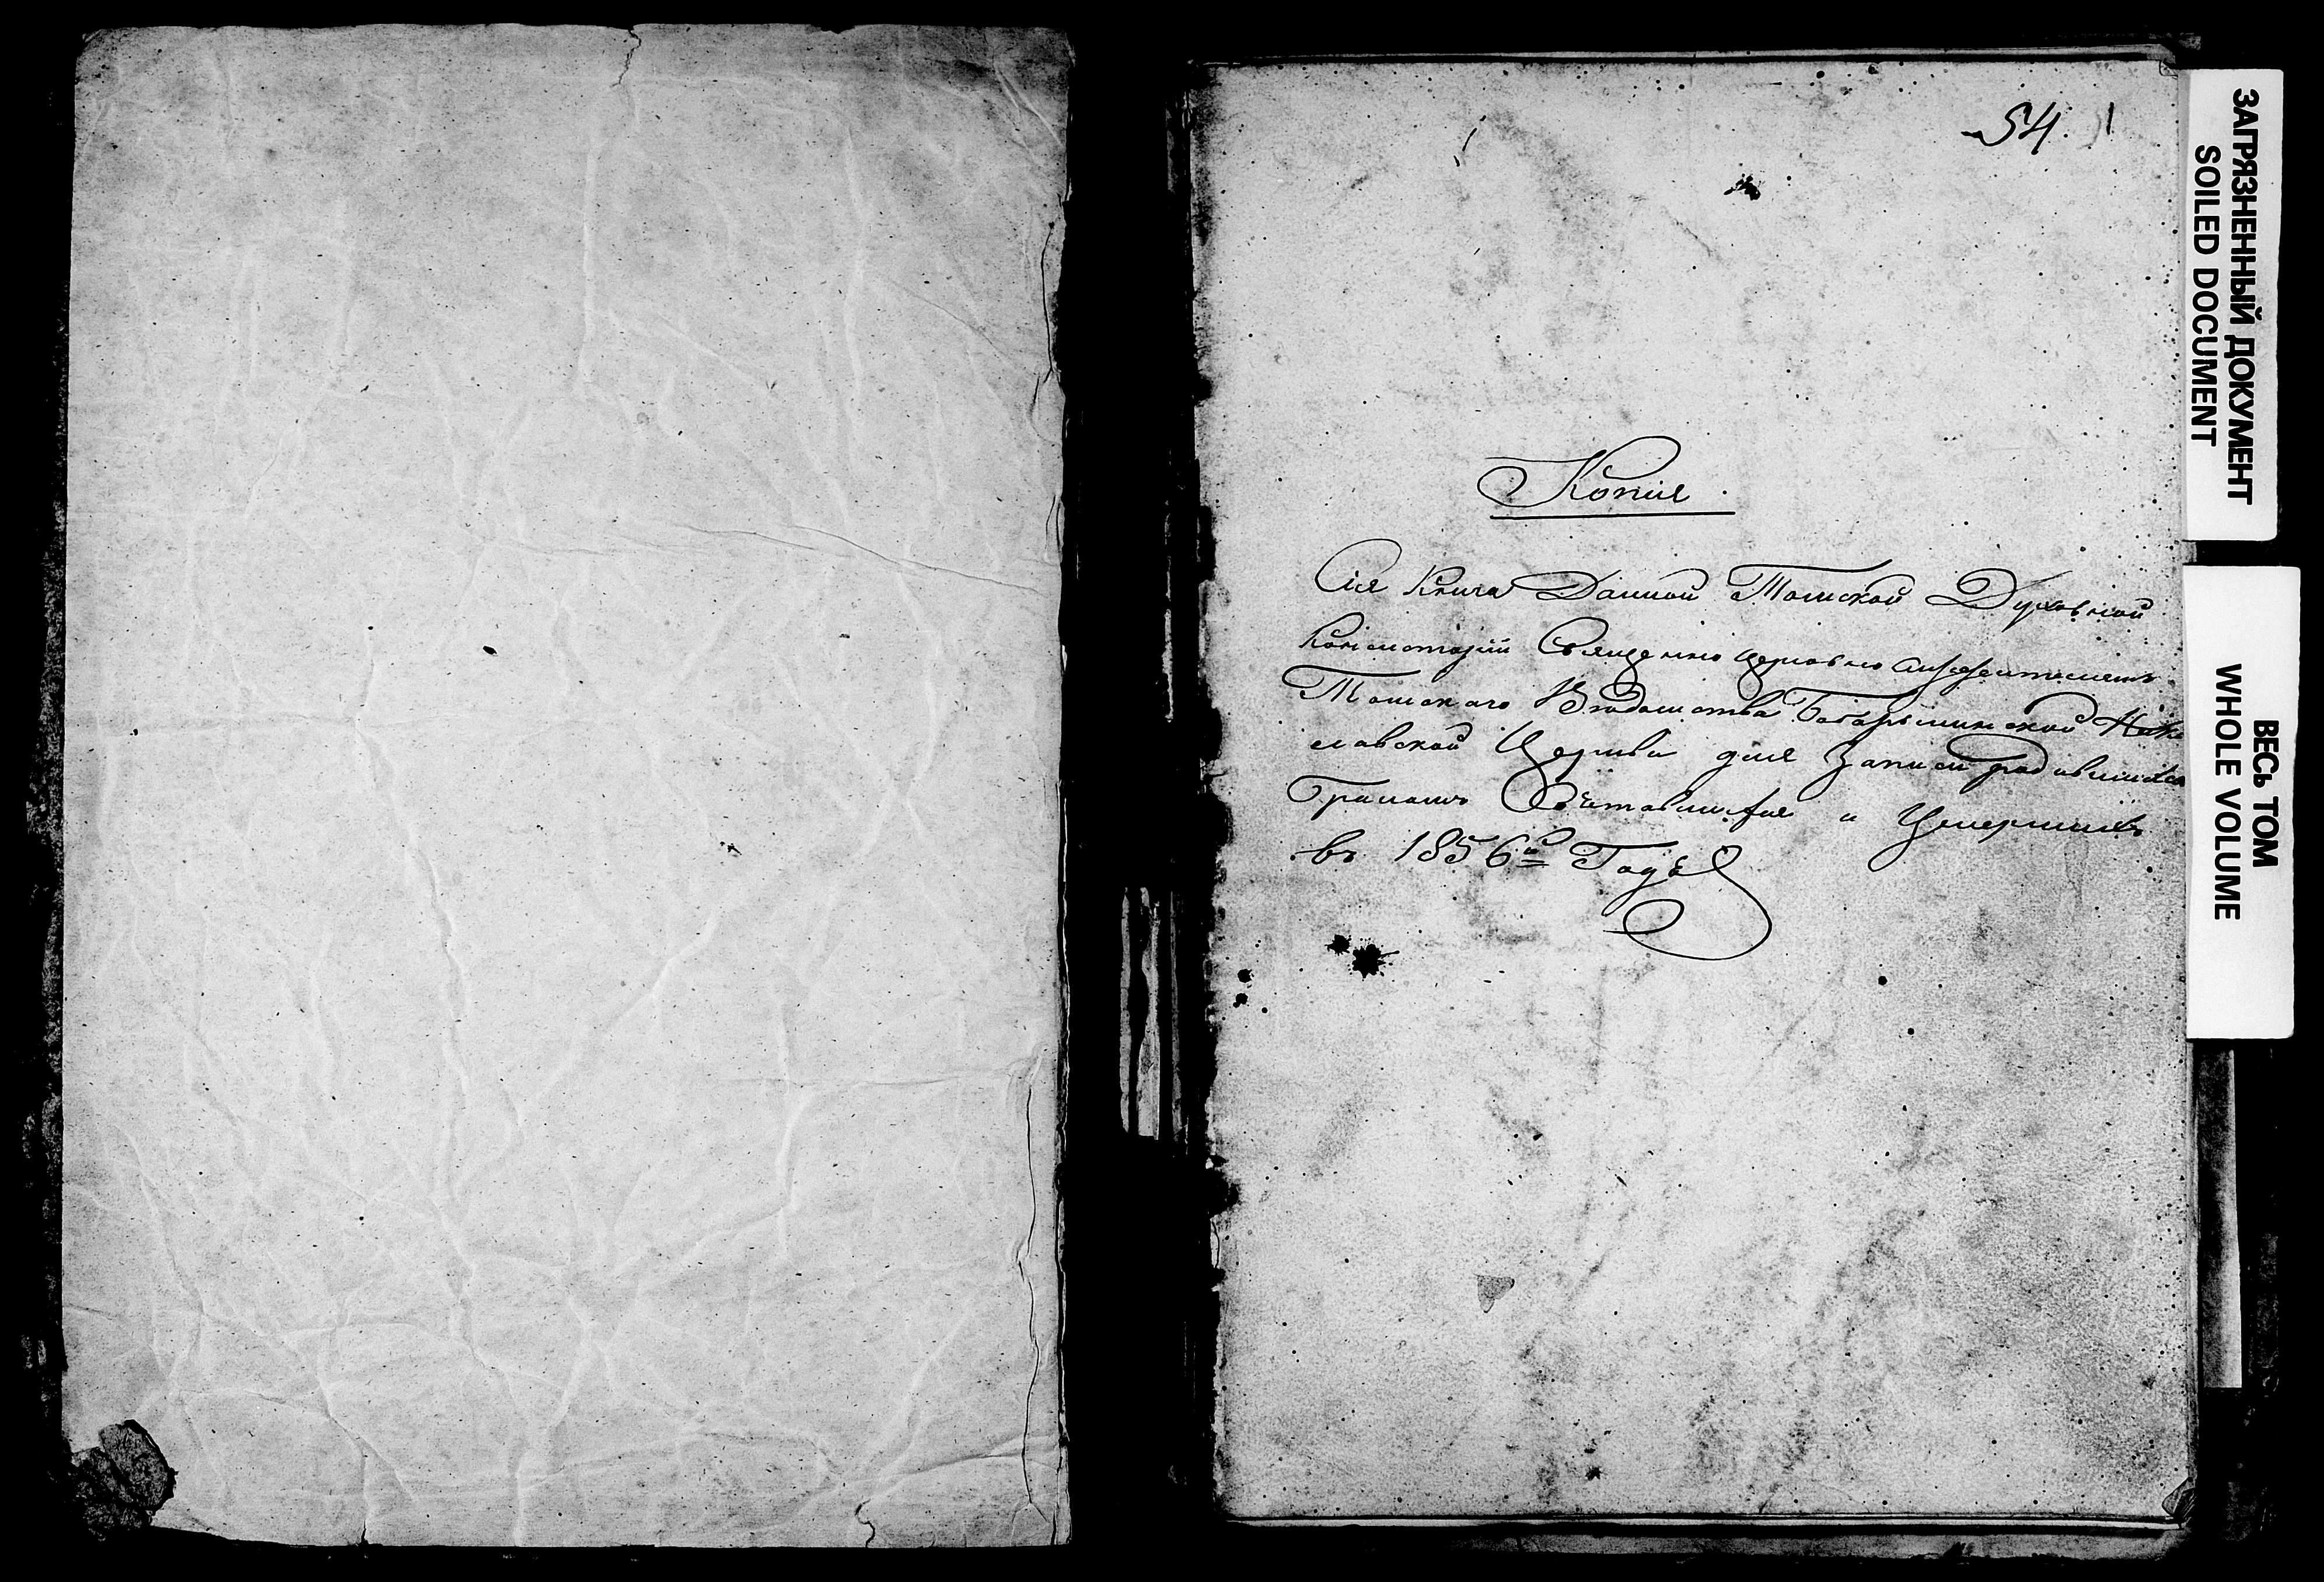 54. 1
Копіе.
Сія Книга Данной Томской Духовной
Консисторіи Священно церковно служителемъ
Томскаго Вѣдомства Богарышинской
Церкви для Записи родившихся
Бракомъ Сочетавшихся и Умершихъ
въ 1856мъ Годѣ
ЗАГРЯЗНЕННЫЙ ДОКУМЕНТ
SOILED DOCUMENT
ВЕСЬ ТОМ
WHOLE VOLUME